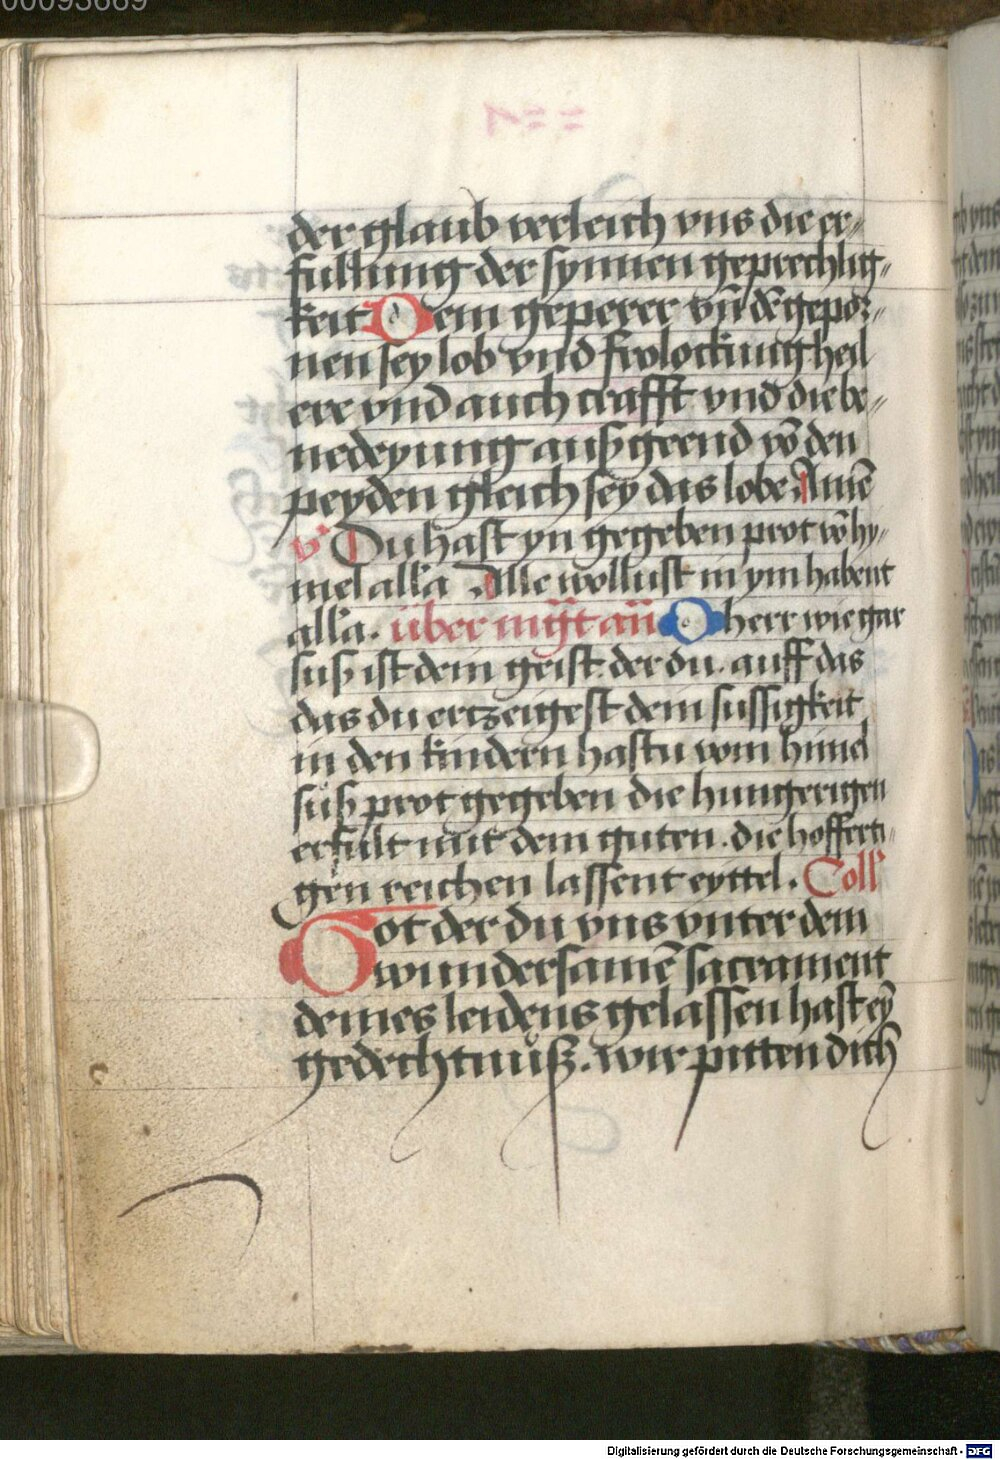 00093669
der glaub verleich vns die er„
fullung der synnen geprechlig„
keit Dem geperer vn̄ dē gepor„
nen sey lob vnd frolockung heil
ere vnd auch crafft vnd die be„
nedeyung auß geend vō den
peyden gleich sey das lobe Amē
v Du hast yn gegeben prot vō hy„
mel all'a Alle wollust in ym habent
all'a. über mg̅t an̄ O herr wie gar
suß ist dein geist. der du. auff das
das du ertzeigest dein sussigkeit
in den kindern hastu vom himel
süß prot gegeben die hungerigen
erfült mit dem guten. die hofferti„
gen reichen lassent eyttel. Coll'
Got der du vns vnter dem
wundersamē sacrament
deines leidens gelassen hast ey̅
gedechtnüß. wir pitten dich
Digitalisierung gefördert durch die Deutsche Forschungsgemeinschaft - DFG